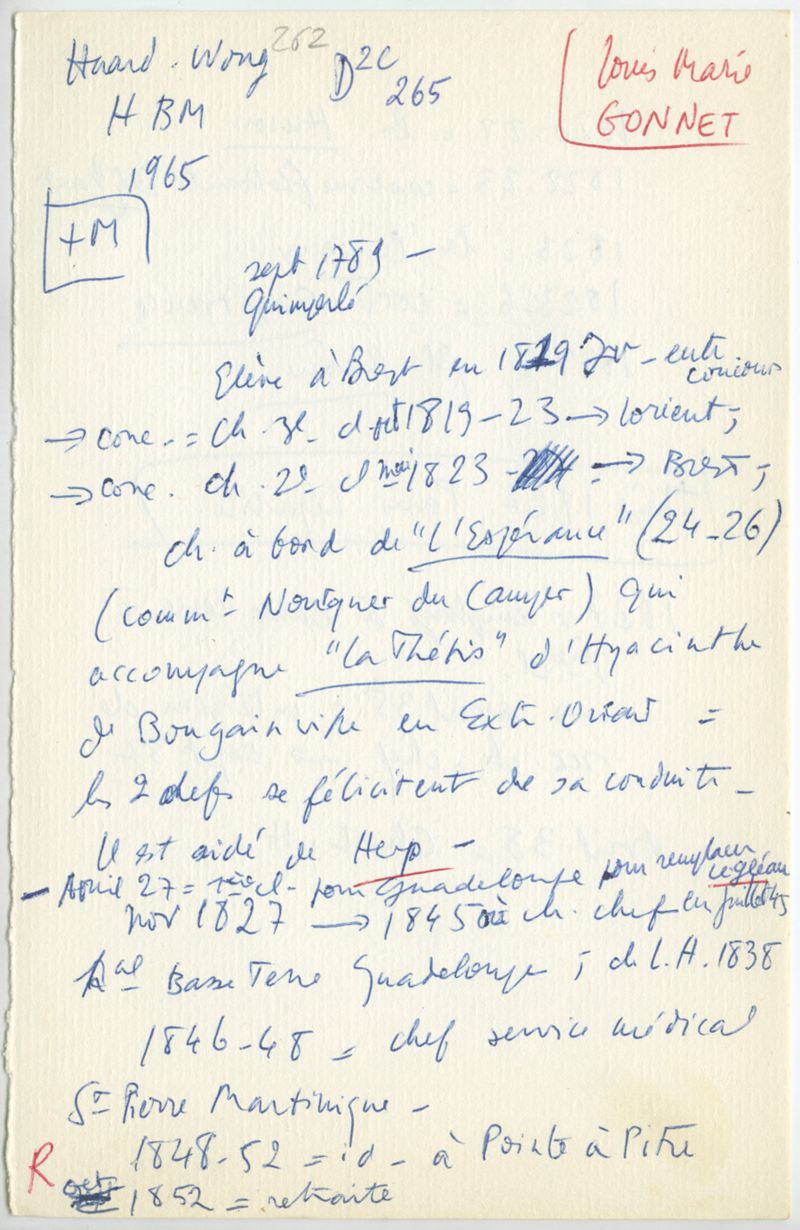 Huard. Wong 262
D2C 265
HBM
1965
+M
Louis Marie
GONNET
sept 1789 -
Quimperlé
Elève à Brest en 1819 - entre
concours
→ conc. = ch. 3e cl oct 1819-23 → Lorient ;
→ conc. ch. 2e cl mai 1823 → Brest ;
ch. à bord de "l'Espérance" (24-26)
(commt Nourquer du Camper) qui
accompagne "la Thétis" d'Hyacinthe
de Bougainville en Ext. Orient =
les 2 chefs se félicitent de sa conduite -
Il est aidé de Herp -
- Avril 27 = 1ère cl - pour Guadeloupe pour remplacer
nov 1827 → 1845 ch. chef en Juillet 45
hal Basse Terre Guadeloupe ; ch L.H. 1838
1846-48 = chef service médical
St Pierre Martinique -
1848-52 = id - à Pointe à Pitre
R oct 1852 = retraite